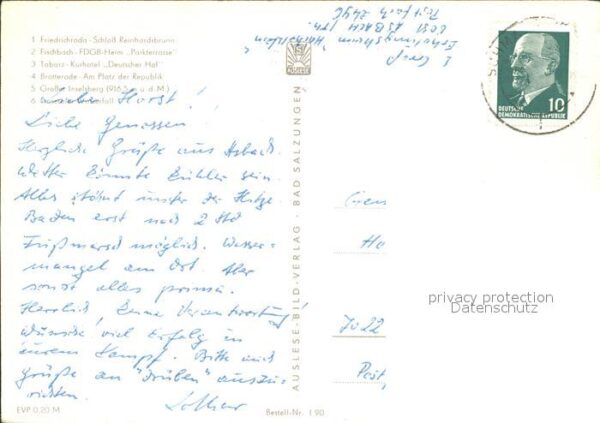 1 Friedrichroda - Schloß Reinhardsbrunn
2 Fischbach - FDGB-Heim „Parkterrasse"
3 Tabarz - Kurhotel „Deutscher Hof"
4 Brotterode - Am Platz der Republik
5 Großer Inselsberg (916,5 m ü. d. M.)
6
Lieber Horst!
Liebe Genossen!
Herzliche Grüße aus Asbach.
Wetter könnte kühler sein.
Alles stöhnt unter der Hitze.
Baden erst nach 2 Std
Fußmarsch möglich. Wasser-
mangel am Ort. Aber
sonst alles prima.
Herzlich, keine Verantwortung!
Wünsche viel Erfolg in
eurem Kampf. Bitte auch
Grüße an "drüben" auszu-
richten.
Lothar
EVP 0,20 M
Bestell-Nr. I 90
AUSLESE-BILD-VERLAG · BAD SALZUNGEN
Erholungsheim
ASBACH /Th.
Postfach
10
DEUTSCHE
DEMOKRATISCHE REPUBLIK
Gen
Ho
7022
Post
privacy protection
Datenschutz